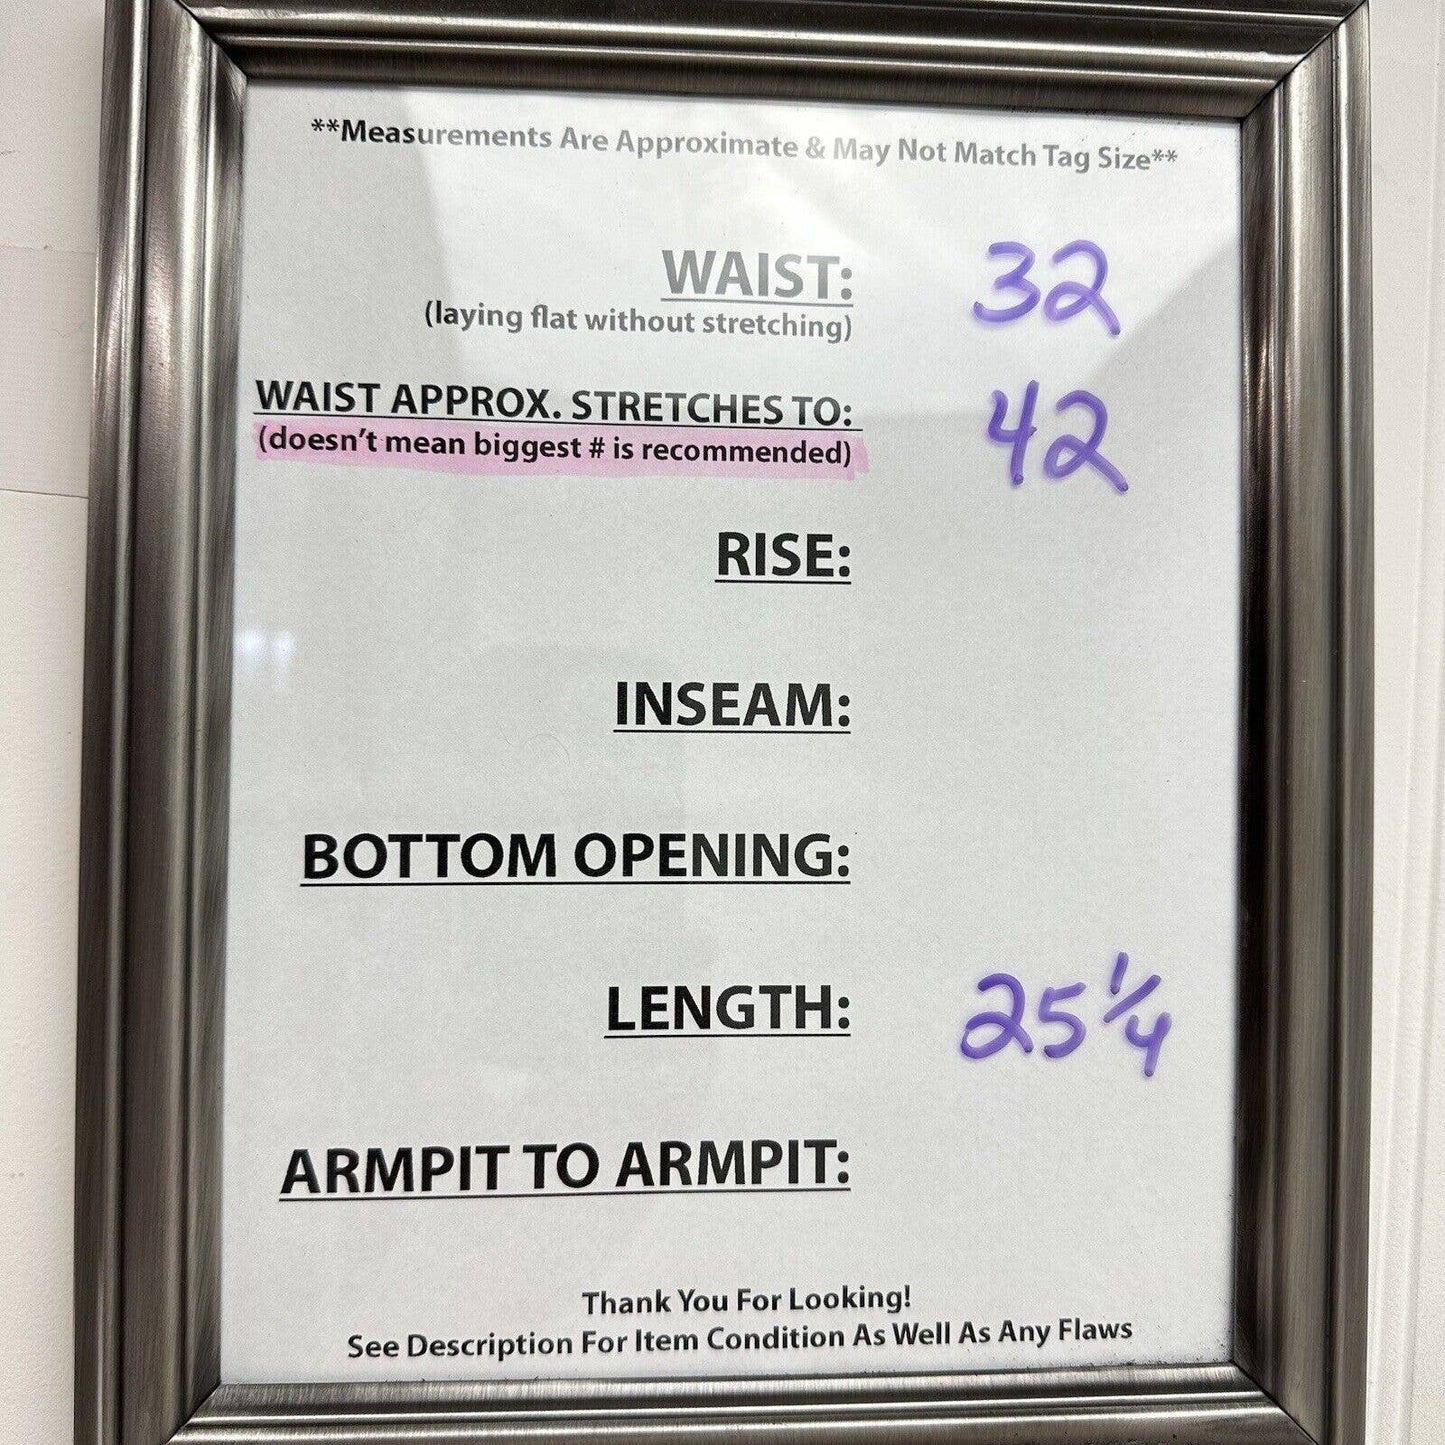 **Measurements Are Approximate & May Not Match Tag Size**
WAIST: 32
(laying flat without stretching)
WAIST APPROX. STRETCHES TO: 42
(doesn't mean biggest # is recommended)
RISE:
INSEAM:
BOTTOM OPENING:
LENGTH: 25 1/4
ARMPIT TO ARMPIT:
Thank You For Looking!
See Description For Item Condition As Well As Any Flaws